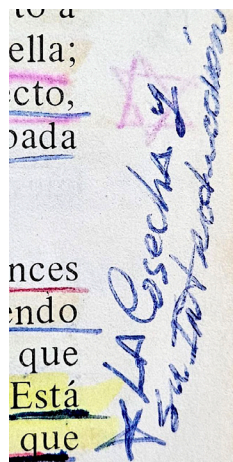 to a
ella;
ecto,
pada
nces
endo
que
Está
que
* LA Cosecha y
su Introducción